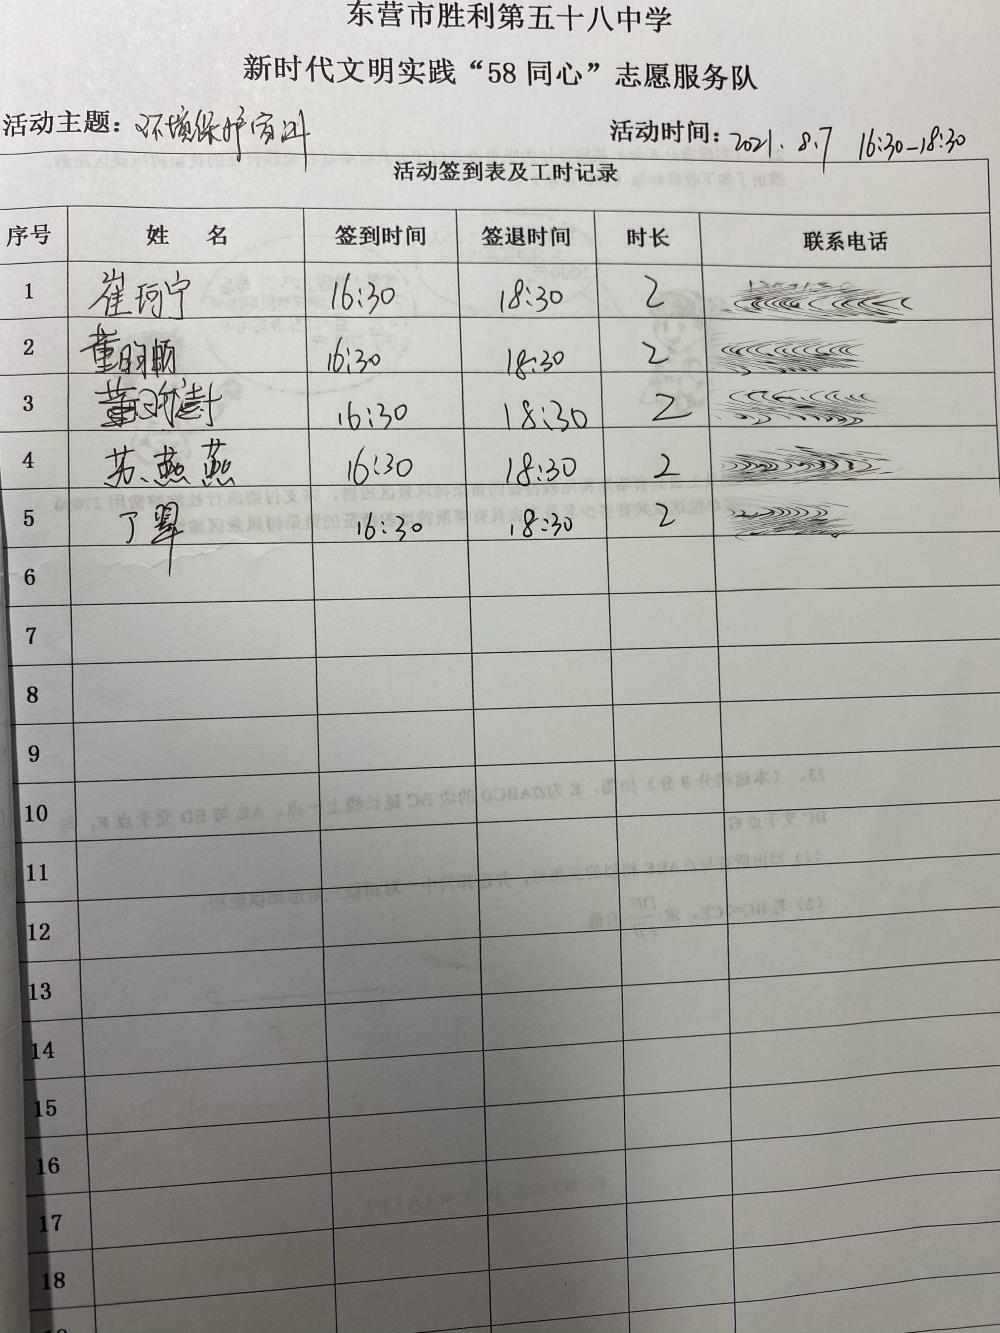 东营市胜利第五十八中学
新时代文明实践“58 同心”志愿服务队
活动主题：环境保护宣讲 活动时间：2021.8.7 16:30-18:30
活动签到表及工时记录
序号 姓 名 签到时间 签退时间 时长 联系电话
1 崔珂宁 16:30 18:30 2
2 董明顺 16:30 18:30 2
3 董 16:30 18:30 2
4 苏燕燕 16:30 18:30 2
5 丁翠 16:30 18:30 2
6
7
8
9
10
11
12
13
14
15
16
17
18